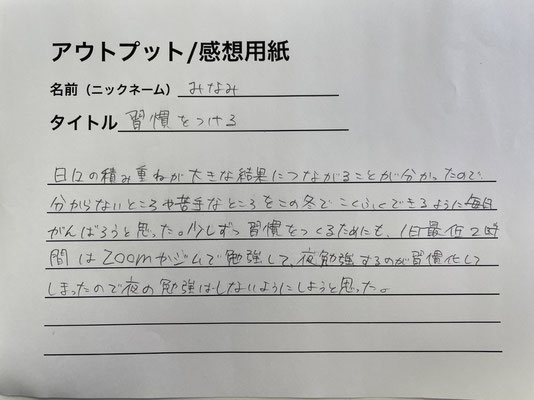 アウトプット/感想用紙
名前（ニックネーム） みなみ
タイトル 習慣をつける
日々の積み重ねが大きな結果につながることが分かったので、
分からないところや苦手なところをこの冬でこくふくできるように毎日
がんばろうと思った。少しずつ習慣をつくるためにも、1日最低2時
間はZoomかジムで勉強して、夜勉強するのが習慣化して
しまったので夜の勉強はしないようにしようと思った。